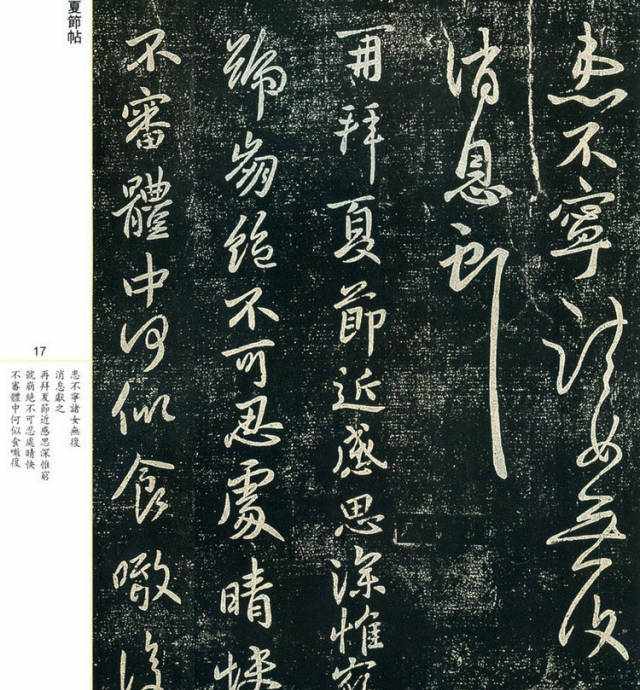 患不寧諸女無復
消息獻之
再拜夏節近感思深惟窮
號崩絕不可忍處晴快
不審體中何似食噉復
夏節帖
17
患不寧諸女無復
消息獻之
再拜夏節近感思深惟窮
號崩絕不可忍處晴快
不審體中何似食噉復